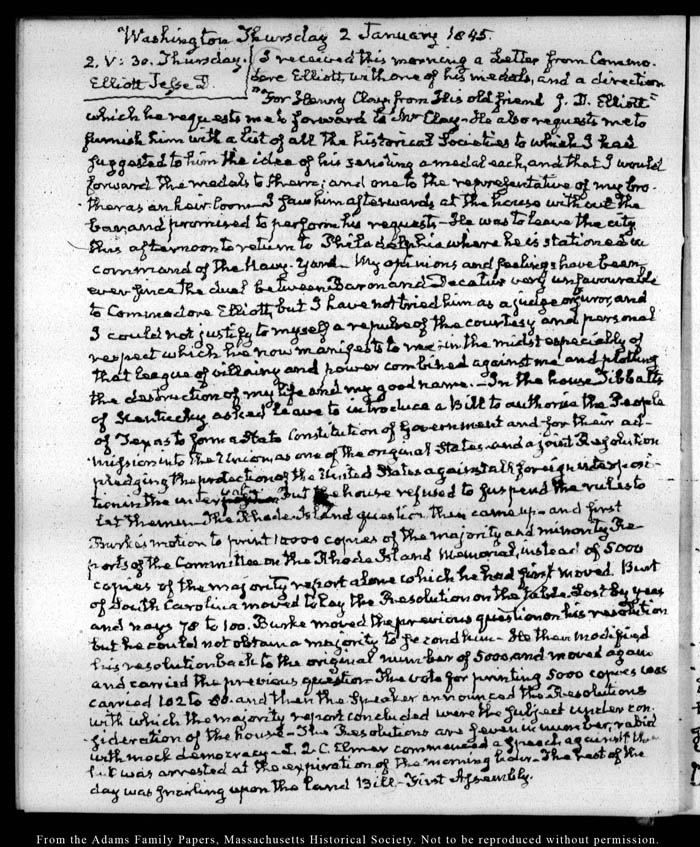 Washington Thursday 2 January 1845.
2. V: 30. Thursday. I received this morning a Letter from Commo-
Elliott Jesse D. dore Elliott, with one of his medals, and a direction
"For Henry Clay from His old friend J. D. Elliott"
which he requests me to forward to Mr Clay- He also requests me to
furnish him with a list of all the historical Societies to which I had
suggested to him the idea of his sending a medal each, and that I would
forward the medals to them; and one to the representative of my bro-
ther as an heir loom- I saw him afterwards at the house without the
bar and promised to perform his requests- He was to leave the city
this afternoon to return to Philadelphia where he is stationed in
command of the Navy-Yard- My opinions and feelings have been
ever since the duel between Baron and Decatur very unfavourable
to Commodore Elliott, but I have not tried him as a judge or juror, and
I could not justify to myself a repulse of the courtesy and personal
respect which he now manifests to me in the midst especially of
that league of villainy and power combined against me and plotting
the destruction of my life and my good name.- In the house Tibbatts
of Kentucky asked leave to introduce a Bill to authorise the People
of Texas to form a State Constitution of Government and for their ad-
mission into the Union as one of the original States- and a joint Resolution
pledging the protection of the United States against all foreign interposi-
tion in the interval- But the house refused to suspend the rules to
let them in- The Rhode-Island question then came up- and first
Burke's motion to print 10000 copies of the majority and minority Re-
ports of the Committee on the Rhode Island Memorial, instead of 5000
copies of the majority report alone which he had first moved. Burt
of South Carolina moved to lay the Resolution on the table. Lost by yeas
and nays 78 to 100. Burke moved the previous question on his resolution
but he could not obtain a majority to second him- He then modified
his resolution back to the original number of 5000, and moved again
and carried the previous question- The vote for printing 5000 copies was
carried 102 to 80. and then the Speaker announced the Resolutions
with which the majority report concluded were the subject under con-
sideration of the house- The Resolutions are seven in number, rabid
with mock democracy- L. Q. C. Elmer commenced a speech against them
but was arrested at the expiration of the morning hour- The rest of the
day was gnarling upon the land Bill- First Assembly.
From the Adams Family Papers, Massachusetts Historical Society. Not to be reproduced without permission.